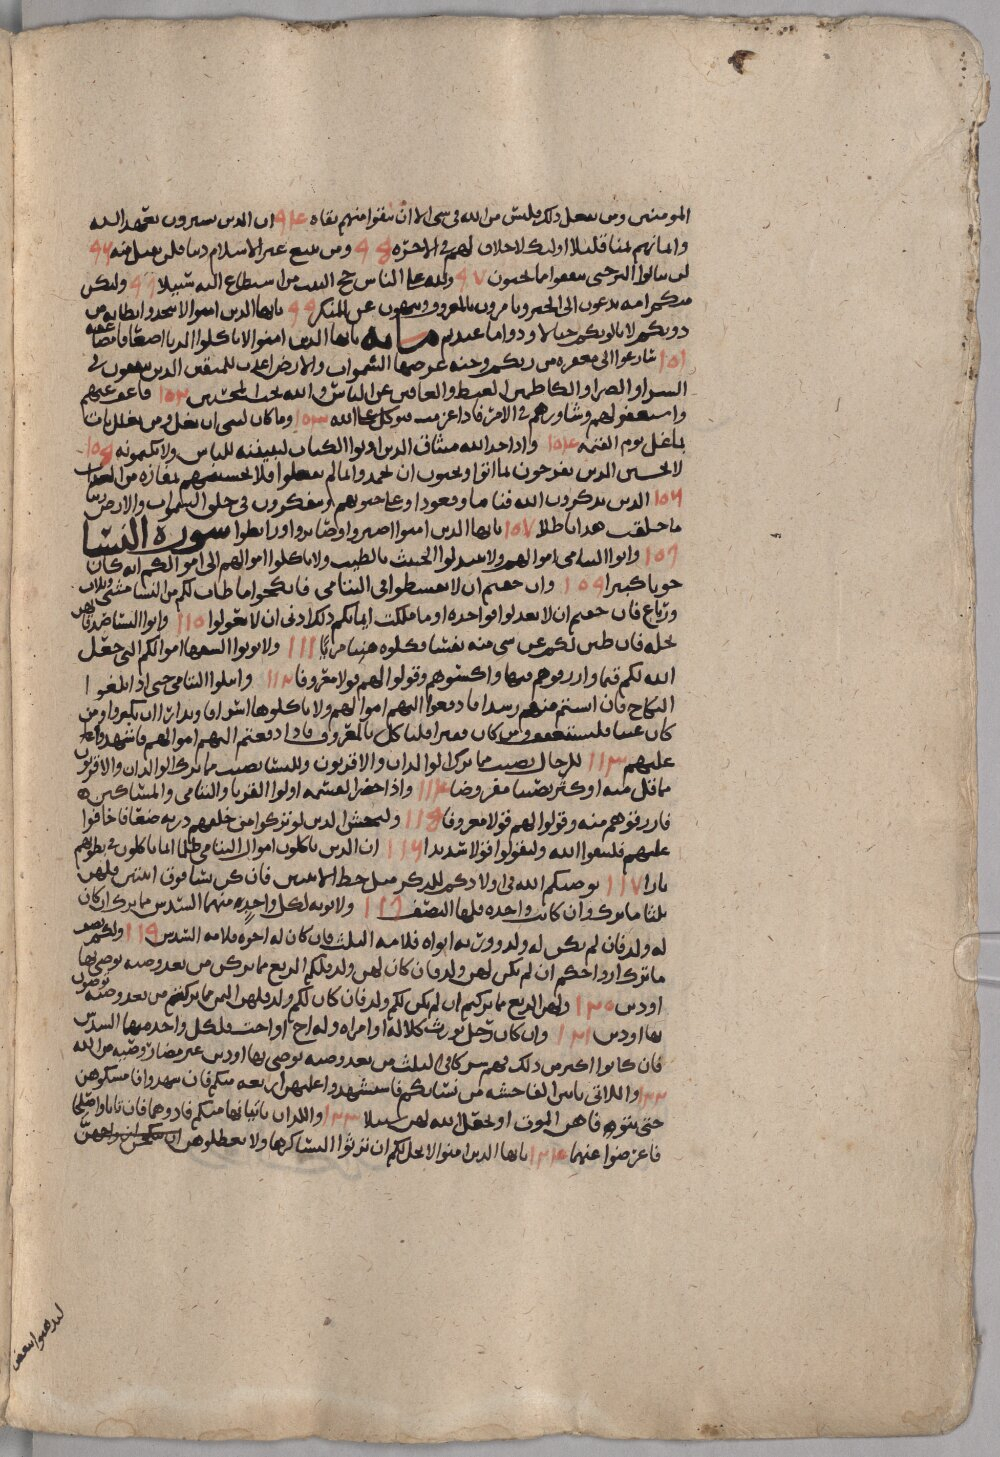 المومنين ومن يفعل ذلك فليس من الله في شي الا ان تتقوا منهم تقاه ٩٤ ان الدين يشترون بعهد الله
وايمانهم ثمنا قليلا اوليك لاخلاق لهم في الاخره ٩٥ ومن يبتغ غير الاسلام دينا فلن يقبل منه ٩٦
لن تنالوا البر حتى تنفقوا مما تحبون ٩٧ ولله على الناس حج البيت من استطاع اليه سبيلا ٩٨ ولتكن
منكم امه يدعون الى الخير ويامرون بالمعروف وينهون عن المنكر ٩٩ يايها الدين امنوا لا تتخدوا بطانه من
دونكم لا يالونكم خبالا ودوا ما عنتم مايه يايها الدين امنوا لا تاكلوا الربا اضعافا مضاعفه
١٠١ سارعوا الى مغفره من ربكم وجنه عرضها السموات والارض اعدت للمتقين الدين ينفقون في
السرا والضرا والكاظمين الغيظ والعافين عن الناس والله يحب المحسنين ١٠٢ فاعف عنهم
واستغفر لهم وشاورهم في الامر فادا عزمت فتوكل على الله ١٠٣ وما كان لنبي ان يغل ومن يغلل يات
بما غل يوم القيمه ١٠٤ واد اخد الله ميثاق الدين اوتوا الكتاب ليبيننه للناس ولا تكتمونه ١٠٥
لا تحسبن الدين يفرحون بما اتوا ويحبون ان يحمدوا بما لم يفعلوا فلا تحسبنهم بمفازه من العداب
١٠٦ الدين يدكرون الله قياما وقعودا وعلى جنوبهم ويتفكرون في خلق السموات والارض ربنا
ما خلقت هدا باطلا ١٠٧ يايها الدين امنوا اصبروا وصابروا ورابطوا سوره النسا
١٠٨ واتوا اليتامى اموالهم ولا تتبدلوا الخبيث بالطيب ولا تاكلوا اموالهم الى اموالكم انه كان
حوبا كبيرا ١٠٩ وان خفتم ان لا تقسطوا في اليتامى فانكحوا ما طاب لكم من النسا مثنى وثلاث
ورباع فان خفتم ان لا تعدلوا فواحده او ما ملكت ايمانكم دلك ادنى ان لا تعولوا ١١٠ واتوا النسا صدقاتهن
نحله فان طبن لكم عن شي منه نفسا فكلوه هنيا مريا ١١١ ولا توتوا السفها اموالكم التي جعل
الله لكم قيما وارزقوهم فيها واكسوهم وقولوا لهم قولا معروفا ١١٢ وابتلوا اليتامى حتى ادا بلغوا
النكاح فان انستم منهم رشدا فادفعوا اليهم اموالهم ولا تاكلوها اسرافا وبدارا ان يكبروا ومن
كان غنيا فليستعفف ومن كان فقيرا فلياكل بالمعروف فادا دفعتم اليهم اموالهم فاشهدوا
عليهم ١١٣ للرجال نصيب مما ترك الوالدان والاقربون وللنسا نصيب مما ترك الوالدان والاقربون
مما قل منه او كثر نصيبا مفروضا ١١٤ وادا حضر القسمه اولوا القربا واليتامى والمساكين
فارزقوهم منه وقولوا لهم قولا معروفا ١١٥ وليخش الدين لو تركوا من خلفهم دريه ضعافا خافوا
عليهم فليتقوا الله وليقولوا قولا سديدا ١١٦ ان الدين ياكلون اموال اليتامى ظلما انما ياكلون في بطونهم
نارا ١١٧ يوصيكم الله في اولادكم للدكر مثل حظ الانثيين فان كن نسا فوق اثنتين فلهن
ثلثا ما ترك وان كانت واحده فلها النصف ١١٨ ولابويه لكل واحد منهما السدس مما ترك ان كان
له ولد فان لم يكن له ولد وورثه ابواه فلامه الثلث فان كان له اخوه فلامه السدس ١١٩ ولكم نصف
ما ترك ازواجكم ان لم يكن لهن ولد فان كان لهن ولد فلكم الربع مما تركن من بعد وصيه يوصين بها
او دين ١٢٠ ولهن الربع مما تركتم ان لم يكن لكم ولد فان كان لكم ولد فلهن الثمن مما تركتم من بعد وصيه توصون
بها او دين ١٢١ وان كان رجل يورث كلاله او امراه وله اخ او اخت فلكل واحد منهما السدس
فان كانوا اكثر من دلك فهم شركا في الثلث من بعد وصيه يوصى بها او دين غير مضار وصيه من الله
١٢٢ واللاتي ياتين الفاحشه من نسايكم فاستشهدوا عليهن اربعه منكم فان شهدوا فامسكوهن
حتى يتوفاهن الموت او يجعل الله لهن سبيلا ١٢٣ واللدان ياتيانها منكم فادوهما فان تابا واصلحا
فاعرضوا عنهما ١٢٤ يايها الدين امنوا لا يحل لكم ان ترثوا النسا كرها ولا تعضلوهن
لتدهبوا ببعض